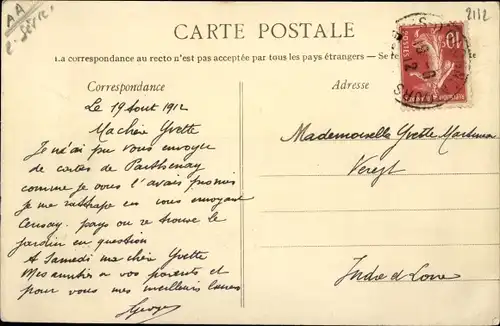 AA
2112
CARTE POSTALE
La correspondance au recto n'est pas acceptée par tous les pays étrangers — Se re
Correspondance
Adresse
Le 19 Aout 1912
Ma chère Yvette
Je n'ai pu vous envoyer
de cartes de Parthenay
comme je vous l'avais promis
je me rattrape en vous envoyant
pays ou se trouve le
jardin en question
A Samedi ma chère Yvette
Mes amitiés a vos parents et
pour vous mes meilleurs
Georges
Mademoiselle Yvette
Veretz
Indre et Loire
POSTES
10